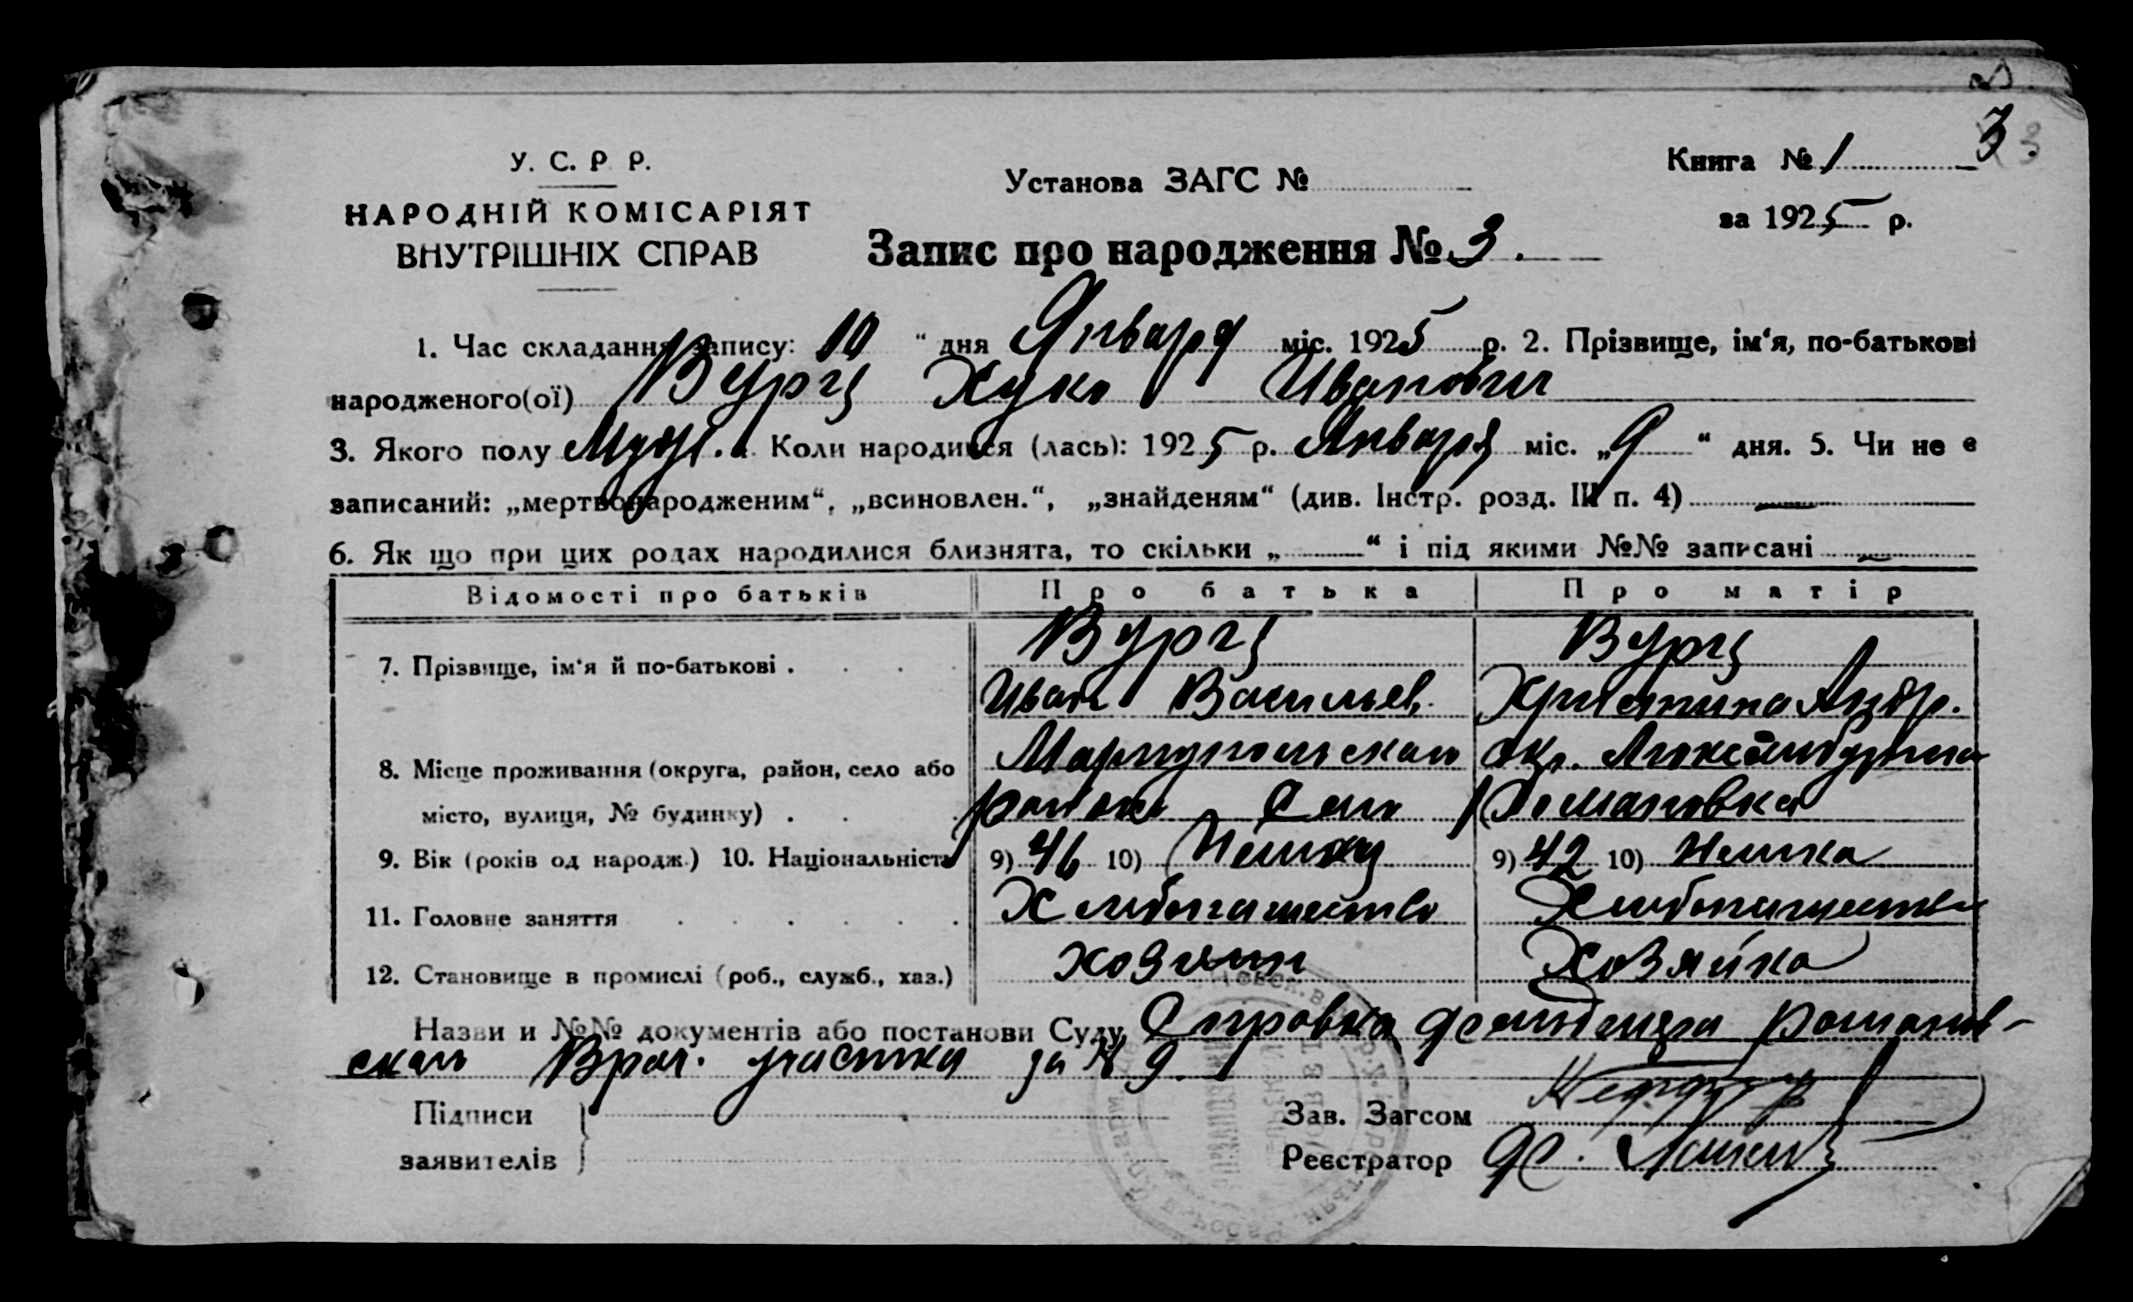 3
У. С. Р. Р.
НАРОДНІЙ КОМІСАРІЯТ
ВНУТРІШНІХ СПРАВ
Установа ЗАГС №
Книга № 1
за 1925 р.
Запис про народження № 3.
1. Час складання запису: 10 " дня Января міс. 1925 р. 2. Прізвище, ім'я, по-батькові
народженого(ої) Вурц Хуко Иванович
3. Якого полу Муж. Коли народився (лась): 1925 р. Января міс. „9" дня. 5. Чи не є
записаний: „мертвонародженим", „всиновлен.", „знайденям" (див. Інстр. розд. III п. 4) —
6. Як що при цих родах народилися близнята, то скільки „—" і під якими №№ записані —
Відомості про батьків Про батька Про матір
7. Прізвище, ім'я й по-батькові . Вурц Вурц
Иван Васильев. Христина Андр.
8. Місце проживання (округа, район, село або Мариупольскаго окр.
місто, вулиця, № будинку) . района Село Романовка
9. Вік (років од народж.) 10. Національність 9) 46 10) Немец 9) 42 10) Немка
11. Головне заняття Хлебопашество Хлебопашество
12. Становище в промислі (роб., служб., хаз.) хозяин Хозяйка
Назви и №№ документів або постанови Суду Справка фельдшера Романов-
скаго Врач. участка за № 9.
Підписи
заявителів
Зав. Загсом
Реєстратор